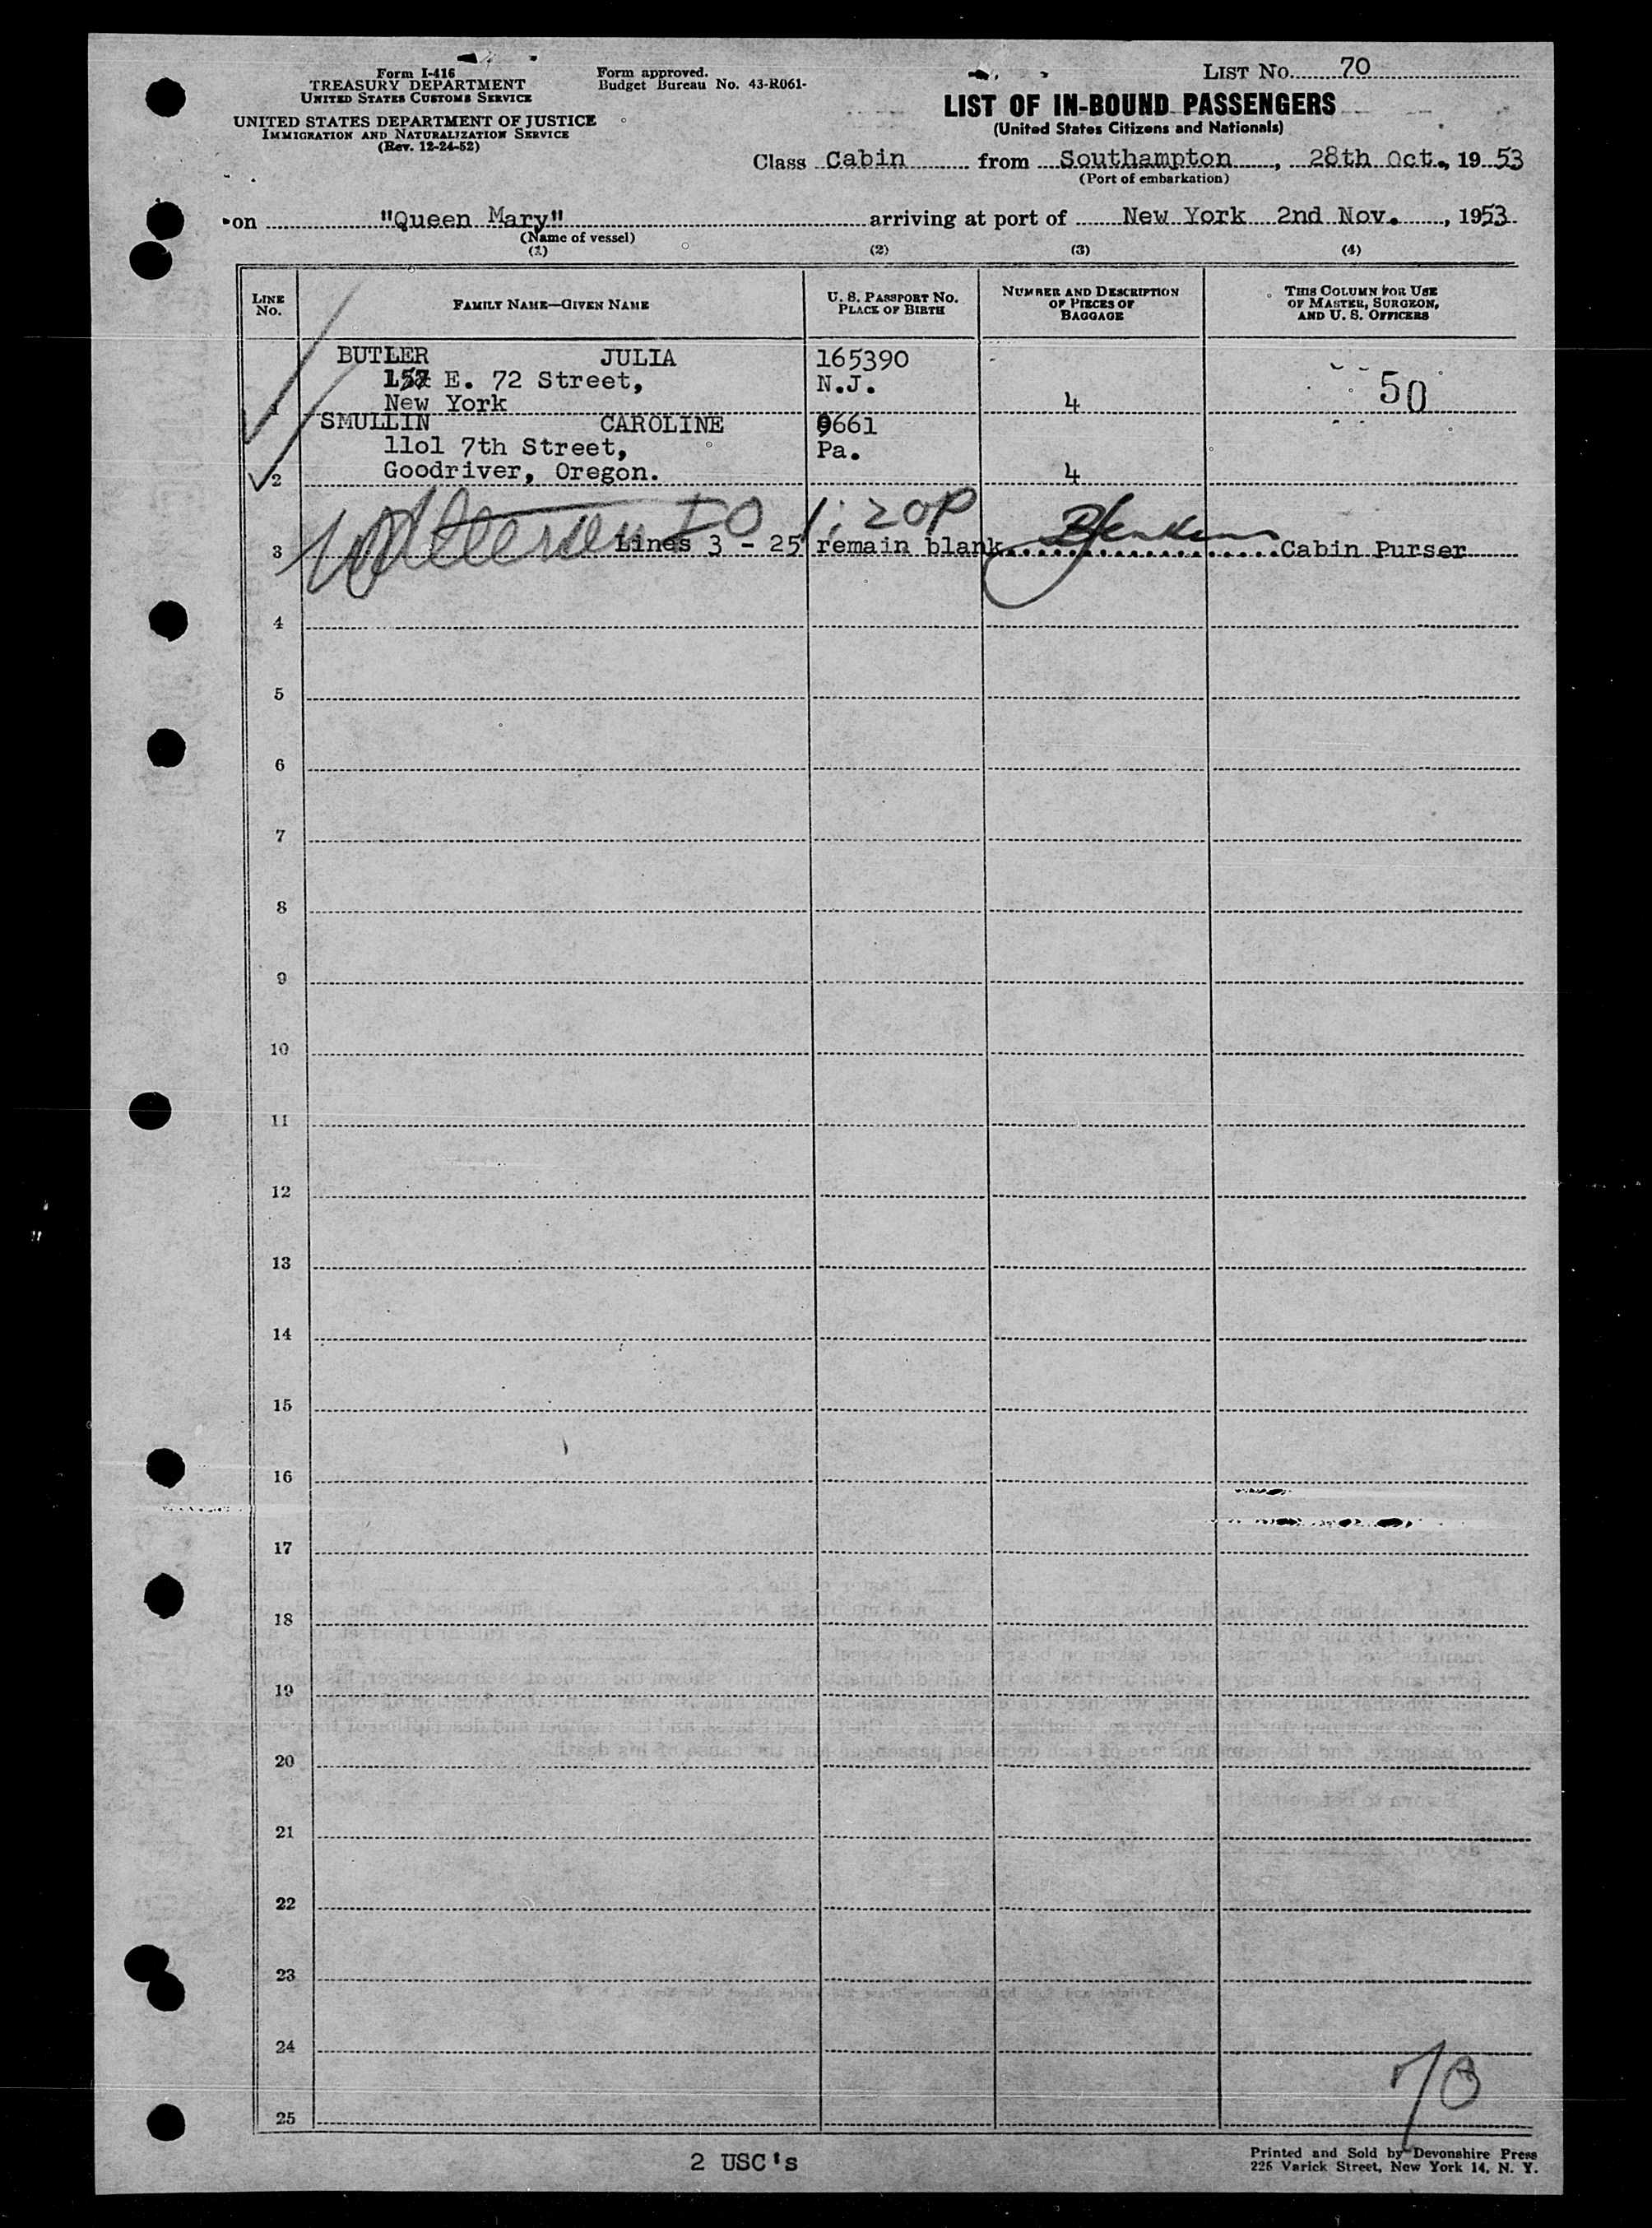 Form I-416
TREASURY DEPARTMENT
UNITED STATES CUSTOMS SERVICE
UNITED STATES DEPARTMENT OF JUSTICE
IMMIGRATION AND NATURALIZATION SERVICE
(Rev. 12-24-52)
Form approved.
Budget Bureau No. 43-R061-
LIST No. 70
LIST OF IN-BOUND PASSENGERS
(United States Citizens and Nationals)
Class Cabin from Southampton, 28th Oct., 1953
(Port of embarkation)
on "Queen Mary" arriving at port of New York 2nd Nov., 1953
(Name of vessel)
(1) (2) (3) (4)
LINE No. FAMILY NAME—GIVEN NAME U. S. PASSPORT No. PLACE OF BIRTH NUMBER AND DESCRIPTION OF PIECES OF BAGGAGE THIS COLUMN FOR USE OF MASTER, SURGEON, AND U. S. OFFICERS
BUTLER JULIA 165390
E. 72 Street, N.J. 50
1 New York 4
SMULLIN CAROLINE 9661
11o1 7th Street, Pa.
2 Goodriver, Oregon. 4
1:20P
3 Lines 3 - 25 remain blank Cabin Purser
4
5
6
7
8
9
10
11
12
13
14
15
16
17
18
19
20
21
22
23
24
25
70
2 USC's
Printed and Sold by Devonshire Press
225 Varick Street, New York 14, N. Y.